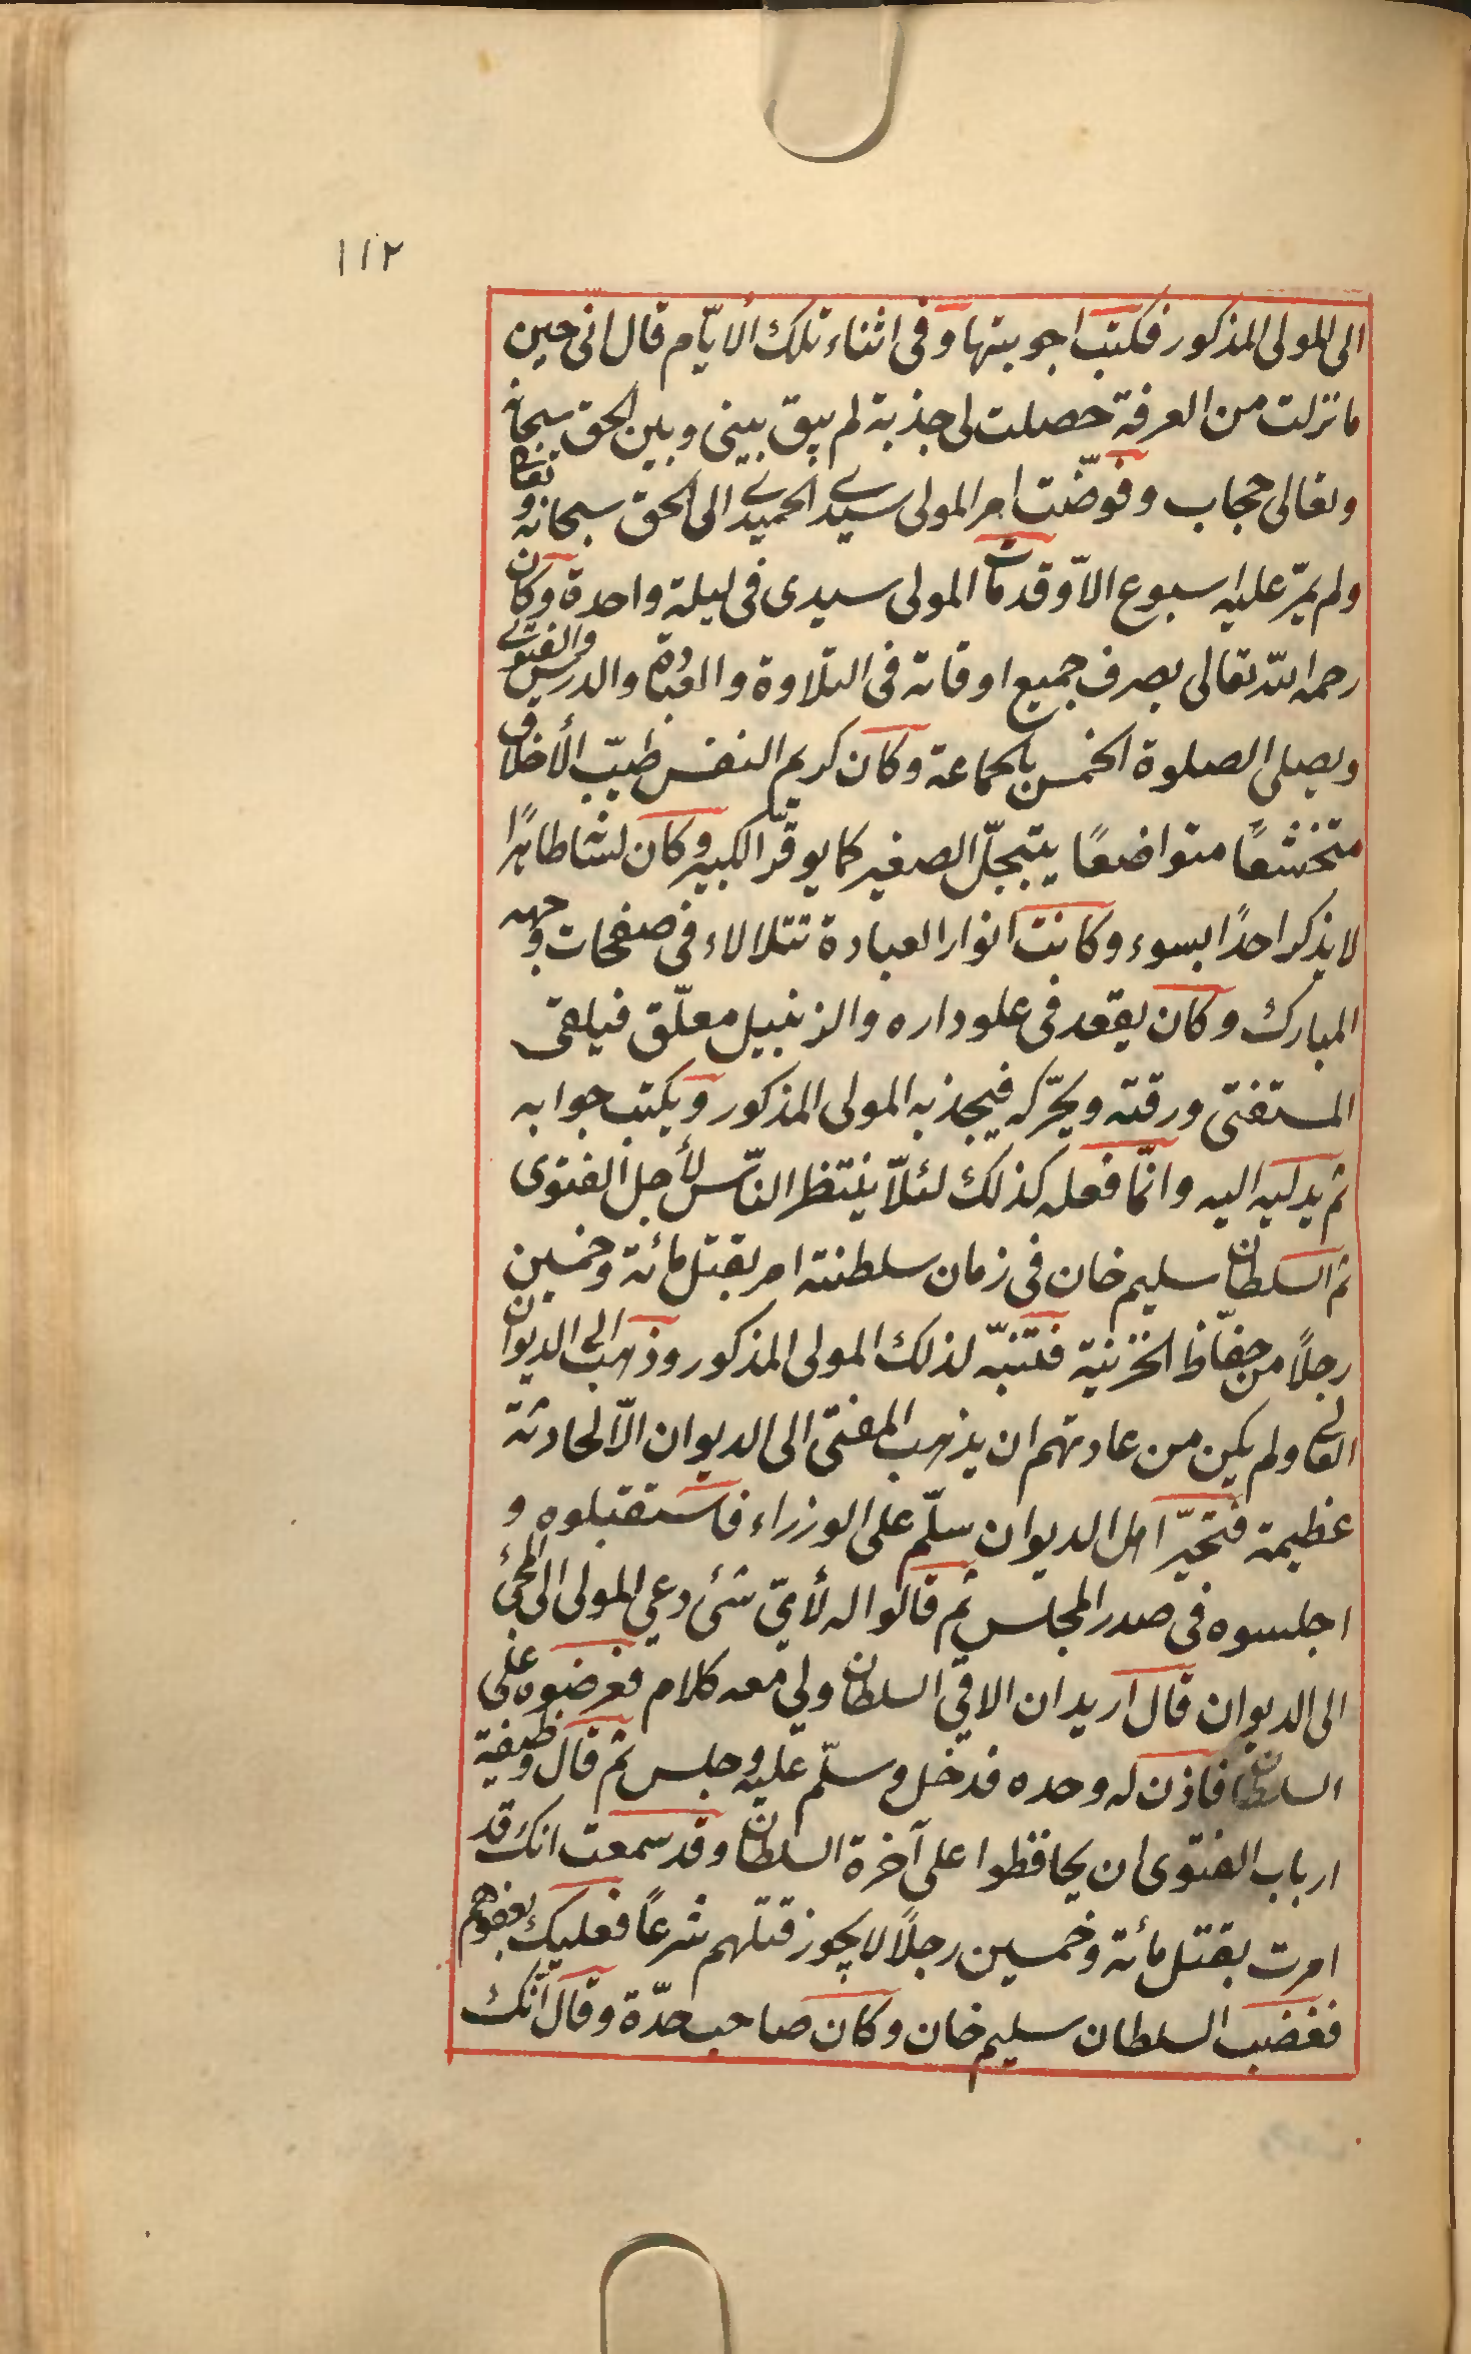 ١١٢
الى المولى المذكور فكتب اجوبتها وفى اثناء تلك الأيّام قال انى حين
ما نزلت من العرفة حصلت لى جذبة لم يبق بينى وبين الحق سبحانه
وتعالى حجاب وفوّضت امر المولى سيدى الحميدى الى الحق سبحانه وتعالى
ولم يمرّ عليه اسبوع الاّ وقد مات المولى سيدى فى ليلة واحدة وكان
رحمه الله تعالى يصرف جميع اوقاته فى التلاوة والعبادة والدرس والفتوى
ويصلى الصلوة الخمس بالجماعة وكان كريم النفس طيّب الأخلاق
متخشعًا متواضعًا يتبجلّ الصغير كما يوقّر الكبير وكان لسانه طاهرًا
لا يذكر احدًا بسوء وكانت انوار العبادة تتلالاء فى صفحات وجهه
المبارك وكان يقعد فى علو داره والزنبيل معلّق فيلقى
المستفتى ورقته ويحّركه فيجذبه المولى المذكور ويكتب جوابه
ثم يدليه اليه وانّما فعله كذلك لئلاّ ينتظر النّاس لأجل الفتوى
ثم السلطان سليم خان فى زمان سلطنته امر بقتل مائة وخمسين
رجلاً من حفّاظ الخزينة فتنبّه لذلك المولى المذكور وذهب الى الديوان
العالى ولم يكن من عادتهم ان يذهب المفتى الى الديوان الاّ لحادثة
عظيمة فتحيّر اهل الديوان سلّم على الوزراء فاستقبلوه و
اجلسوه فى صدر المجلس ثم قالوا له لأىّ شئ دعى المولى الى المجئ
الى الديوان قال اريد ان الاقى السلطان ولى معه كلام فعرضوه على
السلطان فاذن له وحده فدخل وسلّم عليه وجلس ثم قال وظيفة
ارباب الفتوى ان يحافظوا على آخرة السلطان وقد سمعت انك قد
امرت بقتل مائة وخمسين رجلاً لا يجوز قتلهم شرعاً فعليك بعفوهم
فغضب السلطان سليم خان وكان صاحب حدّة وقال انّك